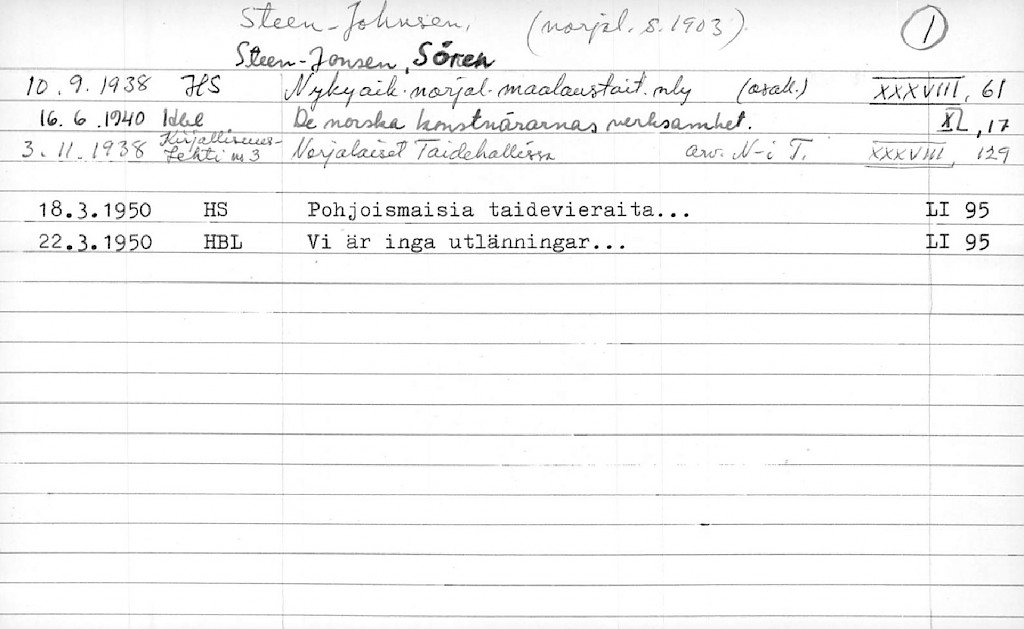 Steen-Johnsen, (norjal. s. 1903). 1
Steen-Jonsen, Sören
10.9.1938 HS Nykyaik. norjal. maalaustait. nly (osall.) XXXVIII, 61
16.6.1940 Hbl De norska konstnärarnas verksamhet. XL, 17
3.11.1938 Kirjallisuus-Lehti no 3 Norjalaiset Taidehallissa arv. N-i T. XXXVIII, 129
18.3.1950 HS Pohjoismaisia taidevieraita... LI 95
22.3.1950 HBL Vi är inga utlänningar... LI 95